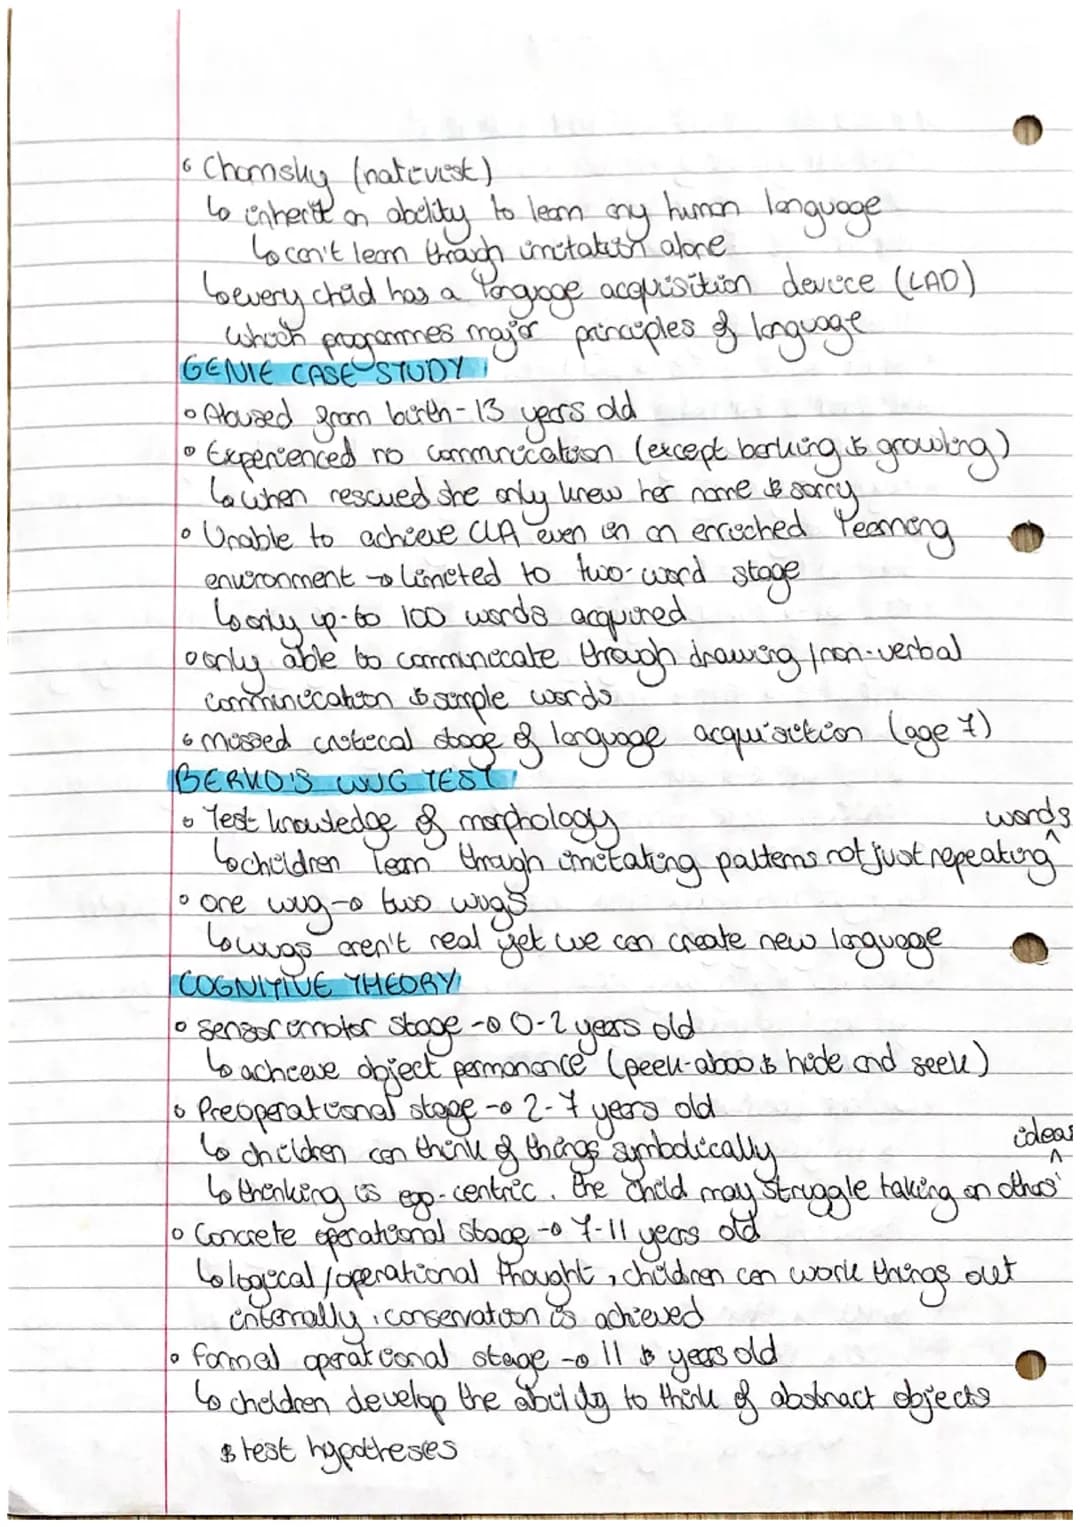 • Chomsky (nativist)
↳ inherit an ability to learn any human language
↳ can't learn through imitation alone
↳ every child has a language acquisition device (LAD)
which programmes major principles of language
GENIE CASE STUDY
• Abused from birth - 13 years old
• Experienced no communication (except barking & growling)
↳ when rescued she only knew her name & sorry
• Unable to achieve CLA even in an enriched learning
environment → limited to two-word stage
↳ only up-to 100 words acquired
• only able to communicate through drawing / non-verbal
communication & simple words
• missed critical stage of language acquisition (age 7)
BERKO'S WUG TEST
• Test knowledge of morphology
↳ children learn through imitating patterns not just repeating ^words
• one wug → two wugs
↳ wugs aren't real yet we can create new language
COGNITIVE THEORY
• sensorimotor stage → 0-2 years old
↳ achieve object permanence (peek-aboo & hide and seek)
• Preoperational stage → 2-7 years old
↳ children can think of things symbolically
↳ thinking is ego-centric. the child may struggle taking on others' ^ideas
• Concrete operational stage → 7-11 years old
↳ logical / operational thought, children can work things out
internally, conservation is achieved
• formal operational stage → 11 & years old
↳ children develop the ability to think of abstract objects
& test hypotheses